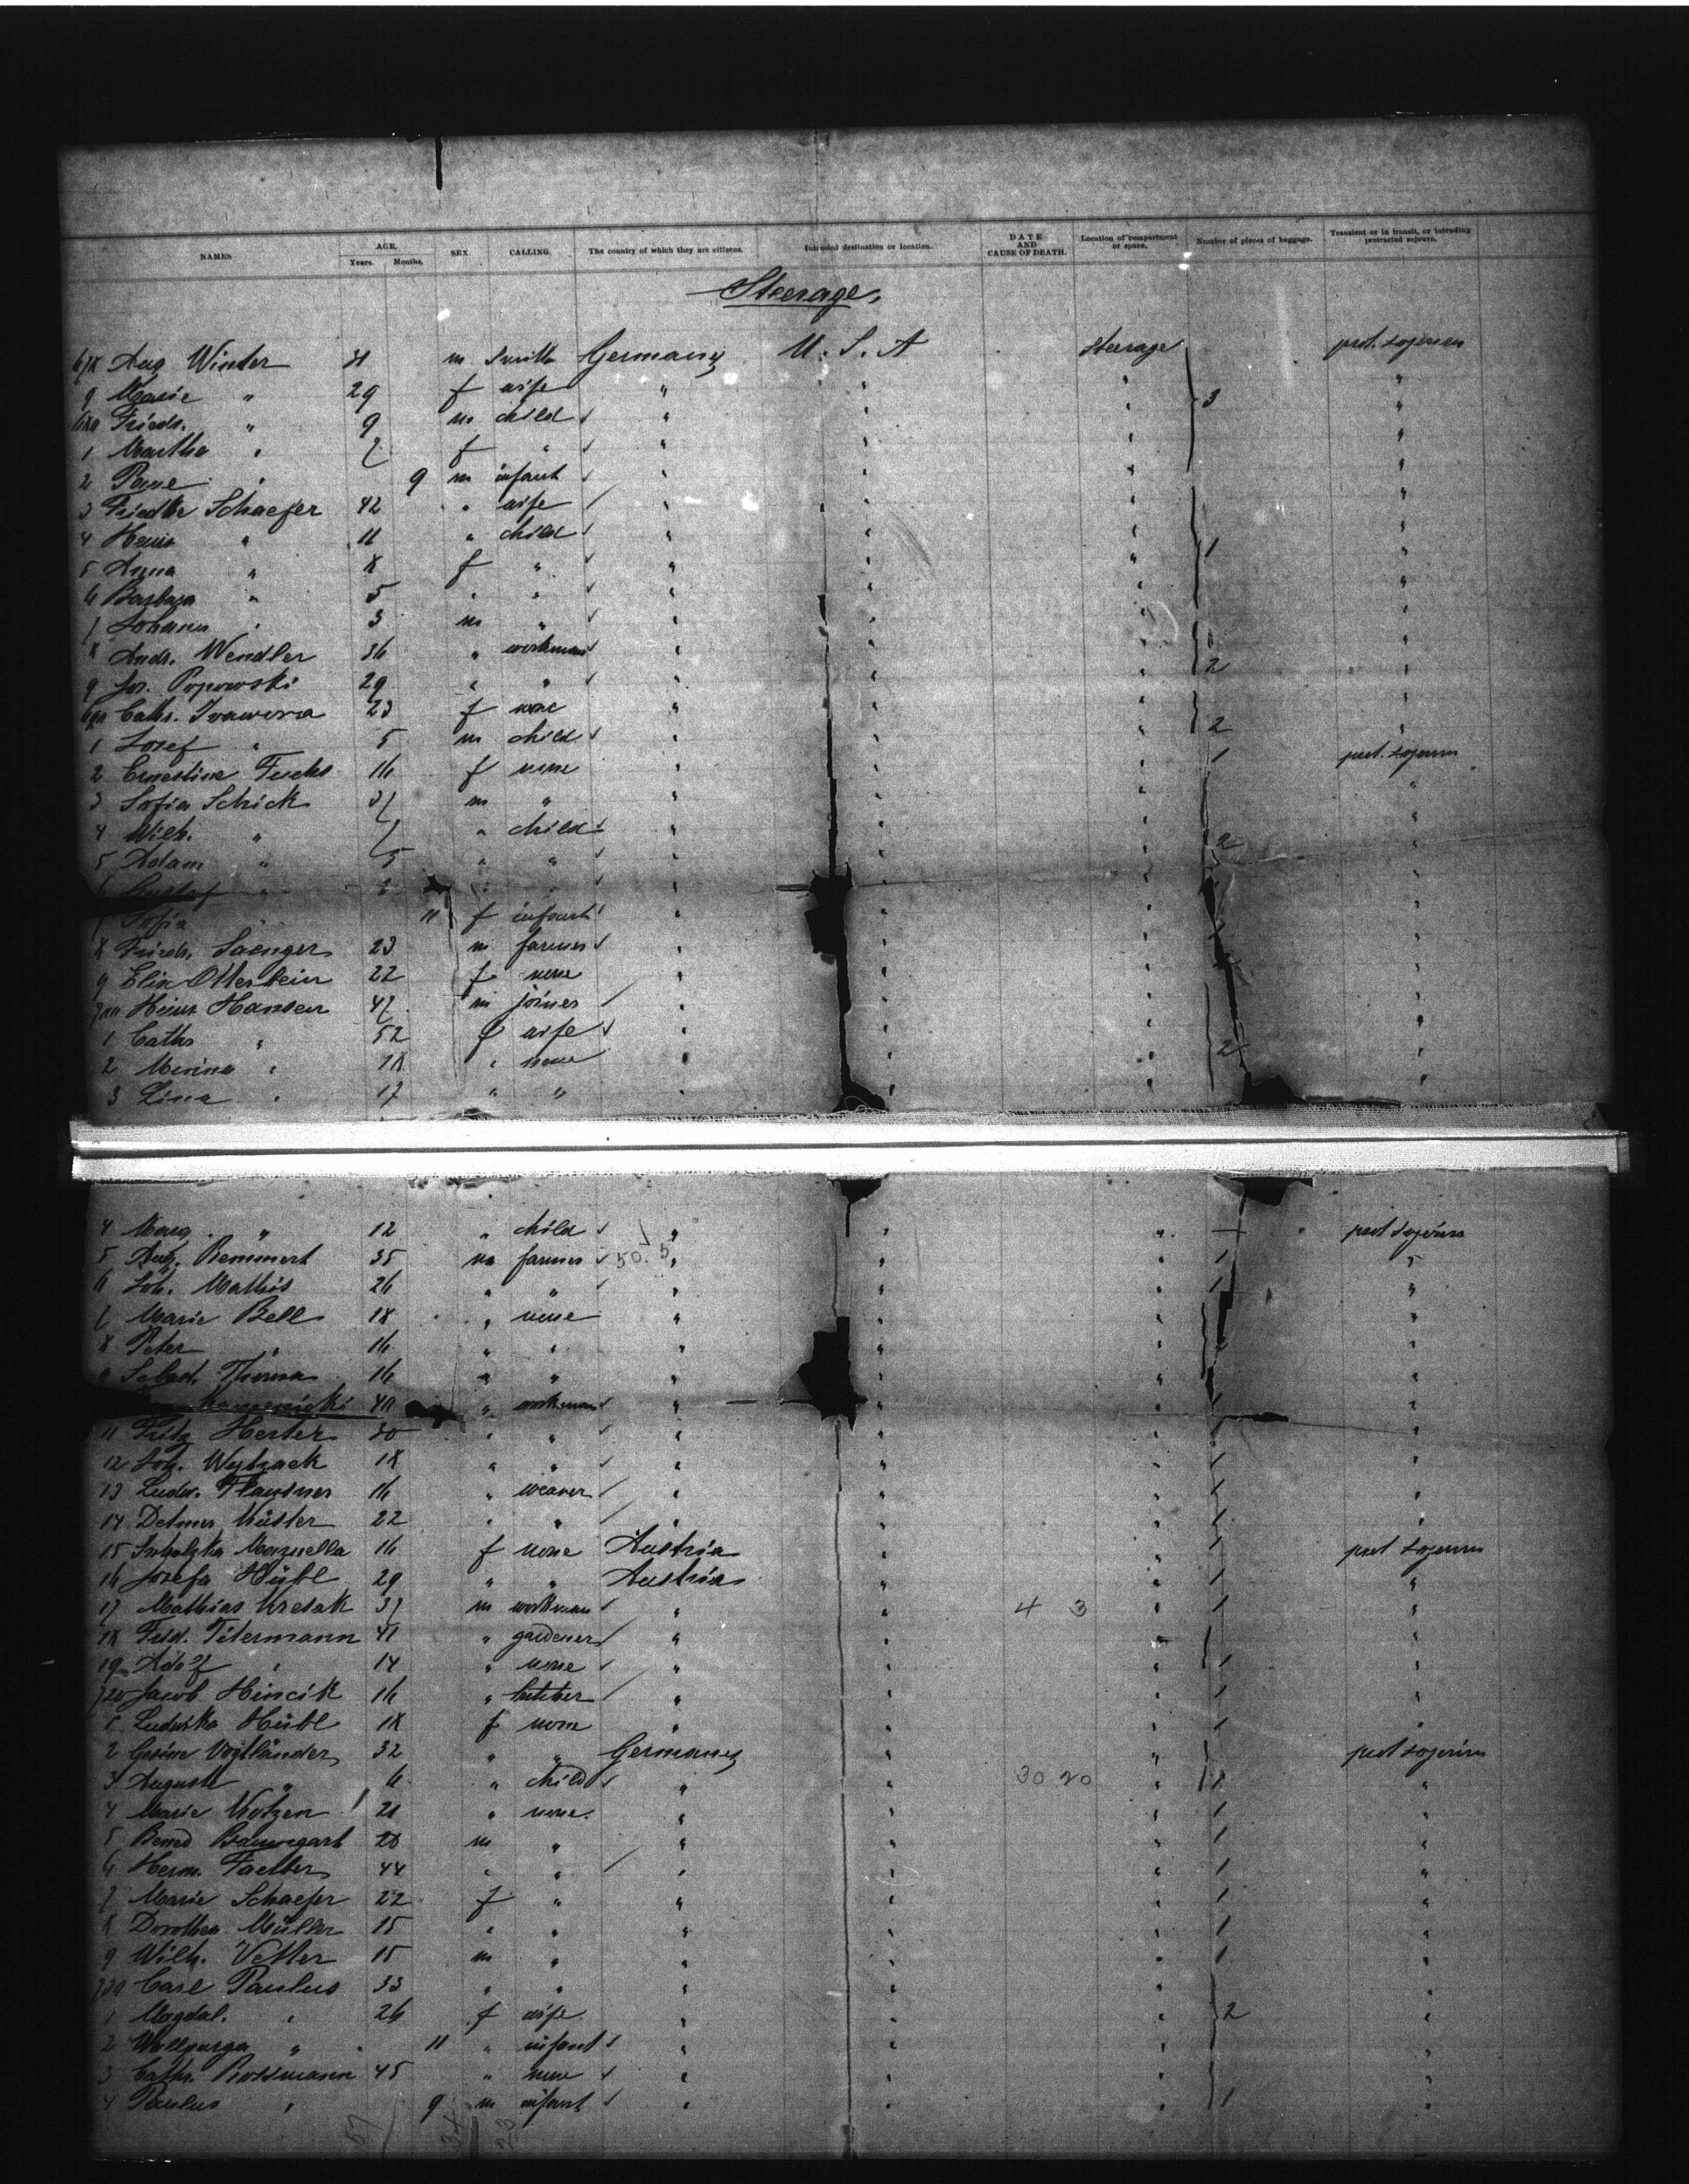 NAMES AGE. Years. Months. SEX. CALLING. The country of which they are citizens. Intended destination or location. DATE AND CAUSE OF DEATH. Location of compartment or space. Number of pieces of baggage. Transient or in transit, or intending protracted sojourn.
Steerage.
Aug Winter 31 m Smith Germany U. S. A Steerage prot. sojourn
9 Marie " 29 f wife " " " 3 "
Friedr. " 9 m child " " " "
1 Martha " 7 f " " " " "
2 9 m infant " " " "
3 Schaefer 42 " wife " " " "
4 " 11 " child " " " 1 "
5 Anna " 8 f " " " " "
6 Barbara " 5 " " " " " "
7 Johann " 3 m " " " " "
8 Andr. Wendler 36 " workman " " " 2 "
9 Jos. Popowski 29 " " " " " "
Cath. 23 f " " " 2 "
1 Josef " 5 m child " " " "
2 Ernestine Fuchs 16 f none " " " 1 prot. sojourn
3 Sofia Schick 37 m " " " " "
4 Wilh. " 7 " child " " " 2 "
5 Adam " 5 " " " " " "
6 " " " " " " "
7 Sofia " 11 f infant " " " "
8 Friedr. Saenger 23 m farmer " " " "
9 Elis Otterbein 22 f none " " " "
Hansen 47 m joiner " " " "
1 Cath " 52 f wife " " " 2 "
2 " 18 " none " " " "
3 Lina " 17 " " " " " "
4 Marg. " 12 " child " " " prot sojourn
5 Aug. Remmert 35 m farmer 50. 5 " " " 1 "
6 Joh. Mathis 26 " " " " " 1 "
7 Marie Bell 18 " none " " " "
8 Peter " 16 " " " " " "
9 Sebast. Thoma 16 " " " " " "
40 " workman " " " 1 "
11 Fritz Herter 30 " " " " " 1 "
12 Joh. 18 " " " " " 1 "
13 Ludw. 16 " weaver " " " 1 "
14 22 " " " " " 1 "
15 16 f none Austria " " 1 prot sojourn
16 Josefa Hübl 29 " " Austria " " 1 "
17 Mathias 37 m workman " " 4 3 " 1 "
18 Ferd. Titermann 41 " gardener " " " "
19 Adolf " 14 " none " " " 1 "
720 Jacob Hincik 16 " butcher " " " 1 "
1 Ludwika Hübl 18 f none " " " 1 "
2 Gesine Vogtländer 32 " " Germany " " prot sojourn
3 Auguste " 6 " child " " 30 20 " 1 "
4 Marie 21 " none. " " " 1 "
5 Baumgart 20 m " " " " 1 "
6 Herm. Faerber 44 " " " " " 1 "
7 Marie Schaefer 22 f " " " " 1 "
8 Dorothea Müller 15 " " " " " 1 "
9 Wilh. Vetter 15 m " " " " 1 "
730 Carl Paulus 33 " " " " " "
1 Magdal. " 26 f wife " " " 2 "
2 Wallpurga " 11 " infant " " " "
3 Cath. Rossmann 45 " none " " " "
4 Paulus " 9 m infant " " " 1 "